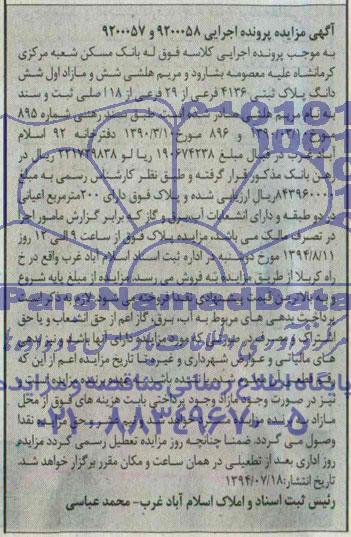 آگهی مزایده پرونده اجرایی ۹۲۰۰۰۵۸ و ۹۲۰۰۰۵۷
به موجب پرونده اجرایی کلاسه فوق له بانک مسکن شعبه مرکزی
کرمانشاه علیه معصومه بشارود و مریم هلشی شش و مازاد اول شش
دانگ پلاک ثبتی ۴۱۳۶ فرعی از ۲۹ فرعی از ۱۱۸ اصلی ثبت و سند
به نام مریم هلشی صادر شده است. طبق سند رهنی شماره ۸۹۵
مورخ ۱۳۹۰/۰۳/۱۰ و ۸۹۶ مورخ ۱۳۹۰/۳/۱۰ دفترخانه ۹۲ اسلام
آباد غرب در قبال مبلغ ۱۹۰۶۷۴۲۳۸ ریال و ۲۲۱۷۴۹۸۳۸ ریال در
رهن بانک مذکور قرار گرفته و طبق نظر کارشناس رسمی به مبلغ
۸۴۳۹۶۰۰۰۰ ریال ارزیابی شده و پلاک فوق دارای ۲۰۰ مترمربع اعیانی
در دو طبقه و دارای انشعابات آب، برق و گاز که برابر گزارش مامور اجرا
در تصرف مالک می باشد، مزایده پلاک فوق از ساعت ۹ الی ۱۲ روز
۱۳۹۴/۸/۱۱ مورخ دوشنبه در اداره ثبت اسناد اسلام آباد غرب واقع در خ
راه کربلا از طریق مزایده به فروش می رسد. مزایده از مبلغ پایه شروع
و به بالاترین قیمت پیشنهادی نقدا فروخته می شود. لازم به ذکر است
پرداخت بدهی های مربوط به آب، برق، گاز اعم از حق انشعاب و یا حق
اشتراک و مصرف در صورتی که مورد مزایده دارای آنها باشد و نیز بدهی
های مالیاتی و عوارض شهرداری و غیره تا تاریخ مزایده اعم از این که
رقم قطعی آن معلوم شده یا نشده باشد به عهده برنده مزایده است و
نیز در صورت وجود مازاد وجوه پرداختی بابت هزینه های فوق از محل
مازاد به برنده مزایده مسترد خواهد شد و نیم عشر و حق مزایده نقدا
وصول می گردد. ضمنا چنانچه روز مزایده تعطیل رسمی گردد مزایده
روز اداری بعد از تعطیلی در همان ساعت و مکان مقرر برگزار خواهد شد.
تاریخ انتشار: ۱۳۹۴/۰۷/۱۸
رئیس ثبت اسناد و املاک اسلام آباد غرب- محمد عباسی